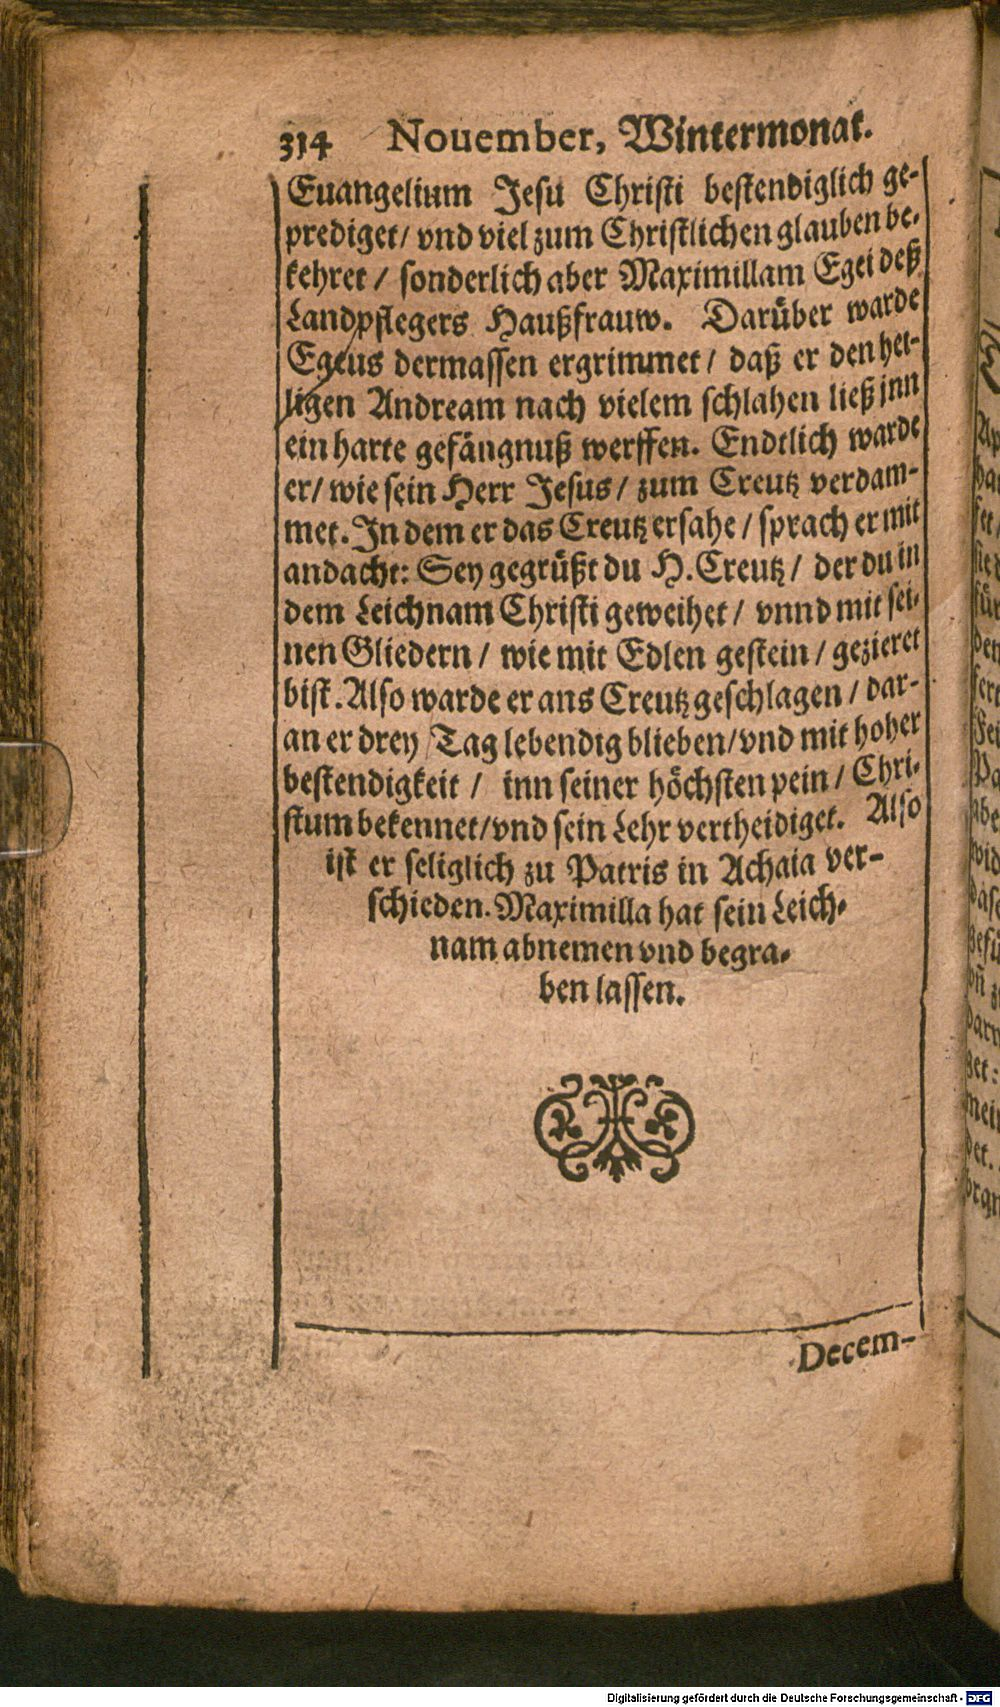 314 Nouember, Wintermonat.
Euangelium Jesu Christi bestendiglich ge-
prediget/ vnd viel zum Christlichen glauben be-
kehret / sonderlich aber Maximillam Egei deß
Landpflegers Haußfrauw. Darüber warde
Egeus dermassen ergrimmet / daß er den hei-
ligen Andream nach vielem schlahen ließ inn
ein harte gefängnuß werffen. Endtlich warde
er/ wie sein Herr Jesus / zum Creutz verdam-
met. In dem er das Creutz ersahe / sprach er mit
andacht: Sey gegrüßt du H. Creutz / der du in
dem Leichnam Christi geweihet / vnnd mit sei-
nen Gliedern / wie mit Edlen gestein / gezieret
bist. Also warde er ans Creutz geschlagen / dar-
an er drey Tag lebendig blieben/ vnd mit hoher
bestendigkeit / inn seiner höchsten pein / Chri-
stum bekennet/ vnd sein Lehr vertheidiget. Also
ist er seliglich zu Patris in Achaia ver-
schieden. Maximilla hat sein Leich-
nam abnemen vnd begra-
ben lassen.
Decem-
Digitalisierung gefördert durch die Deutsche Forschungsgemeinschaft - DFG